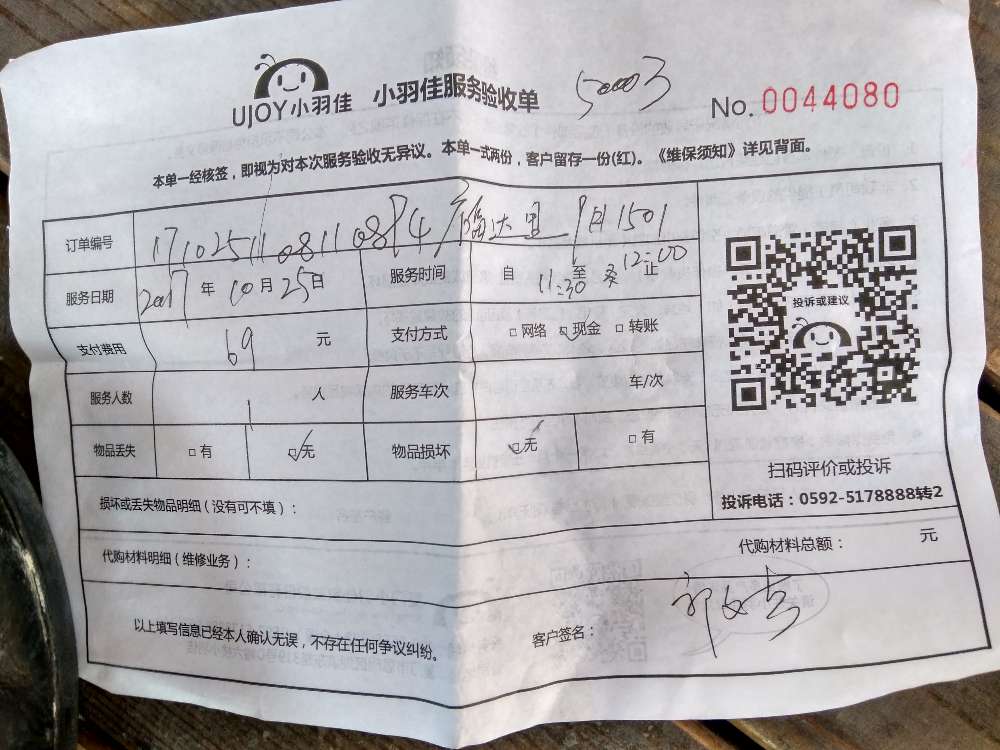 UJOY小羽佳 小羽佳服务验收单 50003 No.0044080
本单一经核签，即视为对本次服务验收无异议。本单一式两份，客户留存一份(红)。《维保须知》详见背面。
订单编号
服务日期 2017 年 10 月 25 日 服务时间 自 11:30 至 12:00 止
支付费用 69 元 支付方式 □网络 ☑现金 □转账
服务人数 1 人 服务车次 车/次
物品丢失 □有 ☑无 物品损坏 ☑无 □有
投诉或建议
扫码评价或投诉
投诉电话：0592-5178888转2
损坏或丢失物品明细（没有可不填）：
代购材料明细（维修业务）： 代购材料总额： 元
以上填写信息已经本人确认无误，不存在任何争议纠纷。 客户签名：